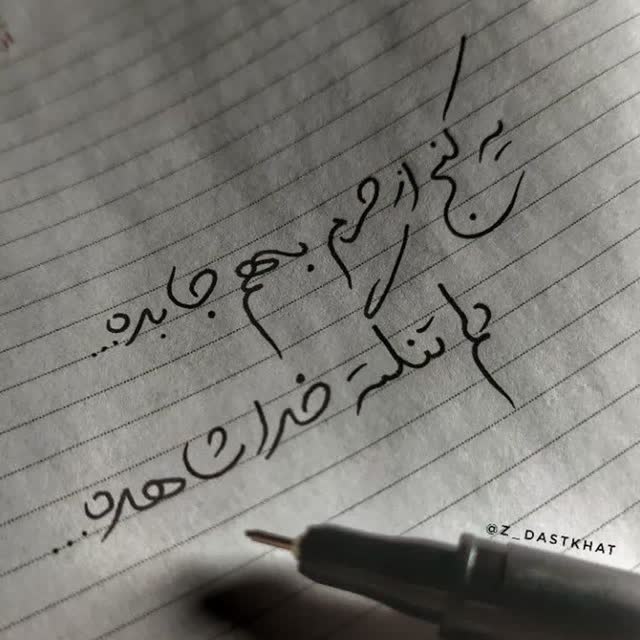 یه کنج از حرم بهم جا بده...
دلم تنگته خدا شاهده...
@Z_DASTKHAT